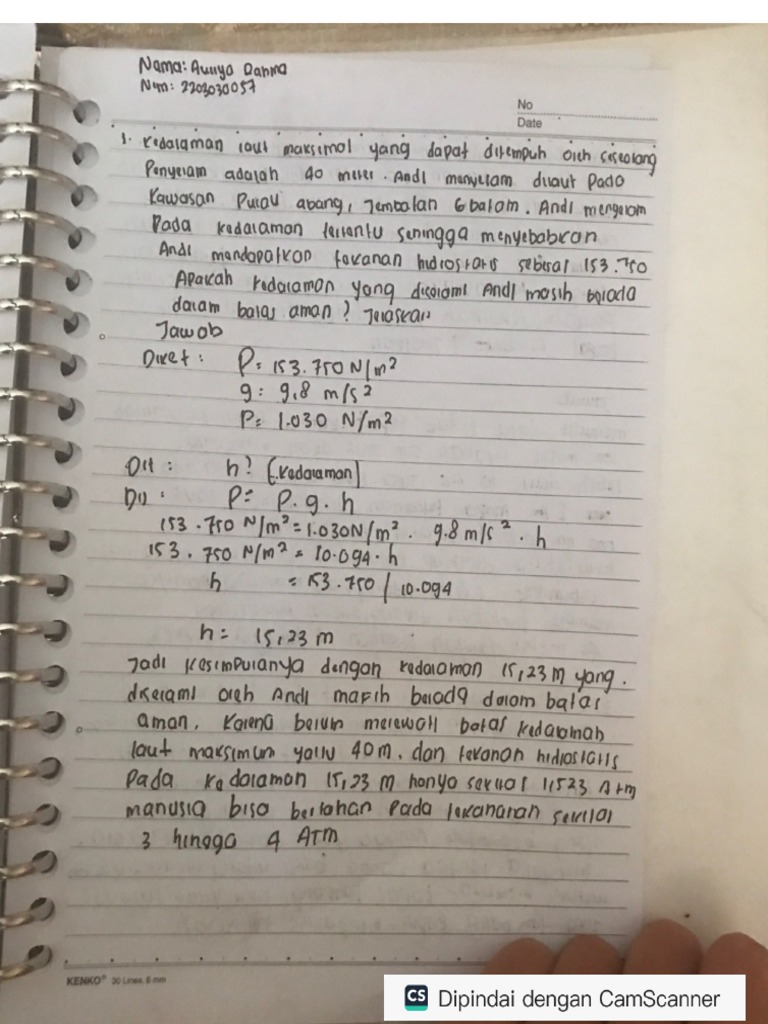 Nama: Auliya Rahma
Nim: 2203030057
No
Date
1. Kedalaman laut maksimal yang dapat ditempuh oleh seseorang
Penyelam adalah 40 meter. Andi menyelam dilaut Pada
Kawasan Pulau abang, Jembatan 6 batam. Andi
Pada kedalaman tertentu sehingga menyebabkan
Andi mendapatkan tekanan hidrostatis sebesar 153.750
Apakah kedalaman yang diselami Andi masih berada
dalam batas aman? Jelaskan
Jawab
Diket: P = 153.750 N/m²
g: 9,8 m/s²
P= 1.030 N/m²
Dit: h? (Kedalaman)
Dij: P= P.g.h
153.750 N/m² = 1.030 N/m². 9.8 m/s². h
153.750 N/m² = 10.094.h
h = 153.750 / 10.094
h = 15,23 m
Jadi kesimpulanya dengan kedalaman 15,23 M yang.
diselami oleh Andi masih berada dalam batas
aman, Karena belum batas kedalaman
laut maksimum yaitu 40 m. dan tekanan hidrostatis
Pada kedalaman 15,23 m hanya sekitar 1,523 Atm
manusia bisa bertahan Pada sekitar
3 hingga 4 ATM
KENKO® 30 Lines, 6 mm
CS Dipindai dengan CamScanner